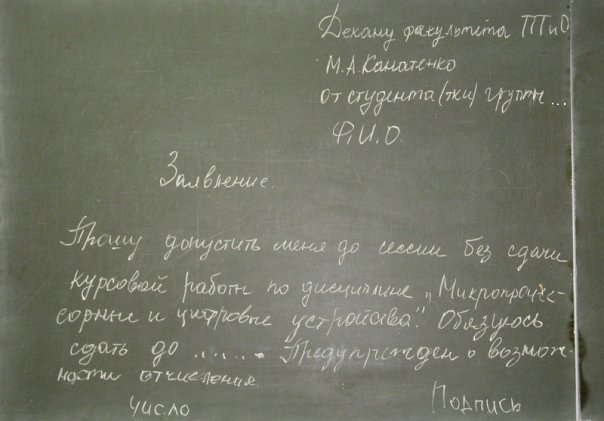 Декану факультета ТТиО
М.А. Канатенко
от студента (тки) группы ...
Ф.И.О.
Заявление.
Прошу допустить меня до сессии без сдачи
курсовой работы по дисциплине „Микропроцес-
сорные и цифровые устройства". Обязуюсь
сдать до ....... Предупрежден о возмож-
ности отчисления.
число Подпись